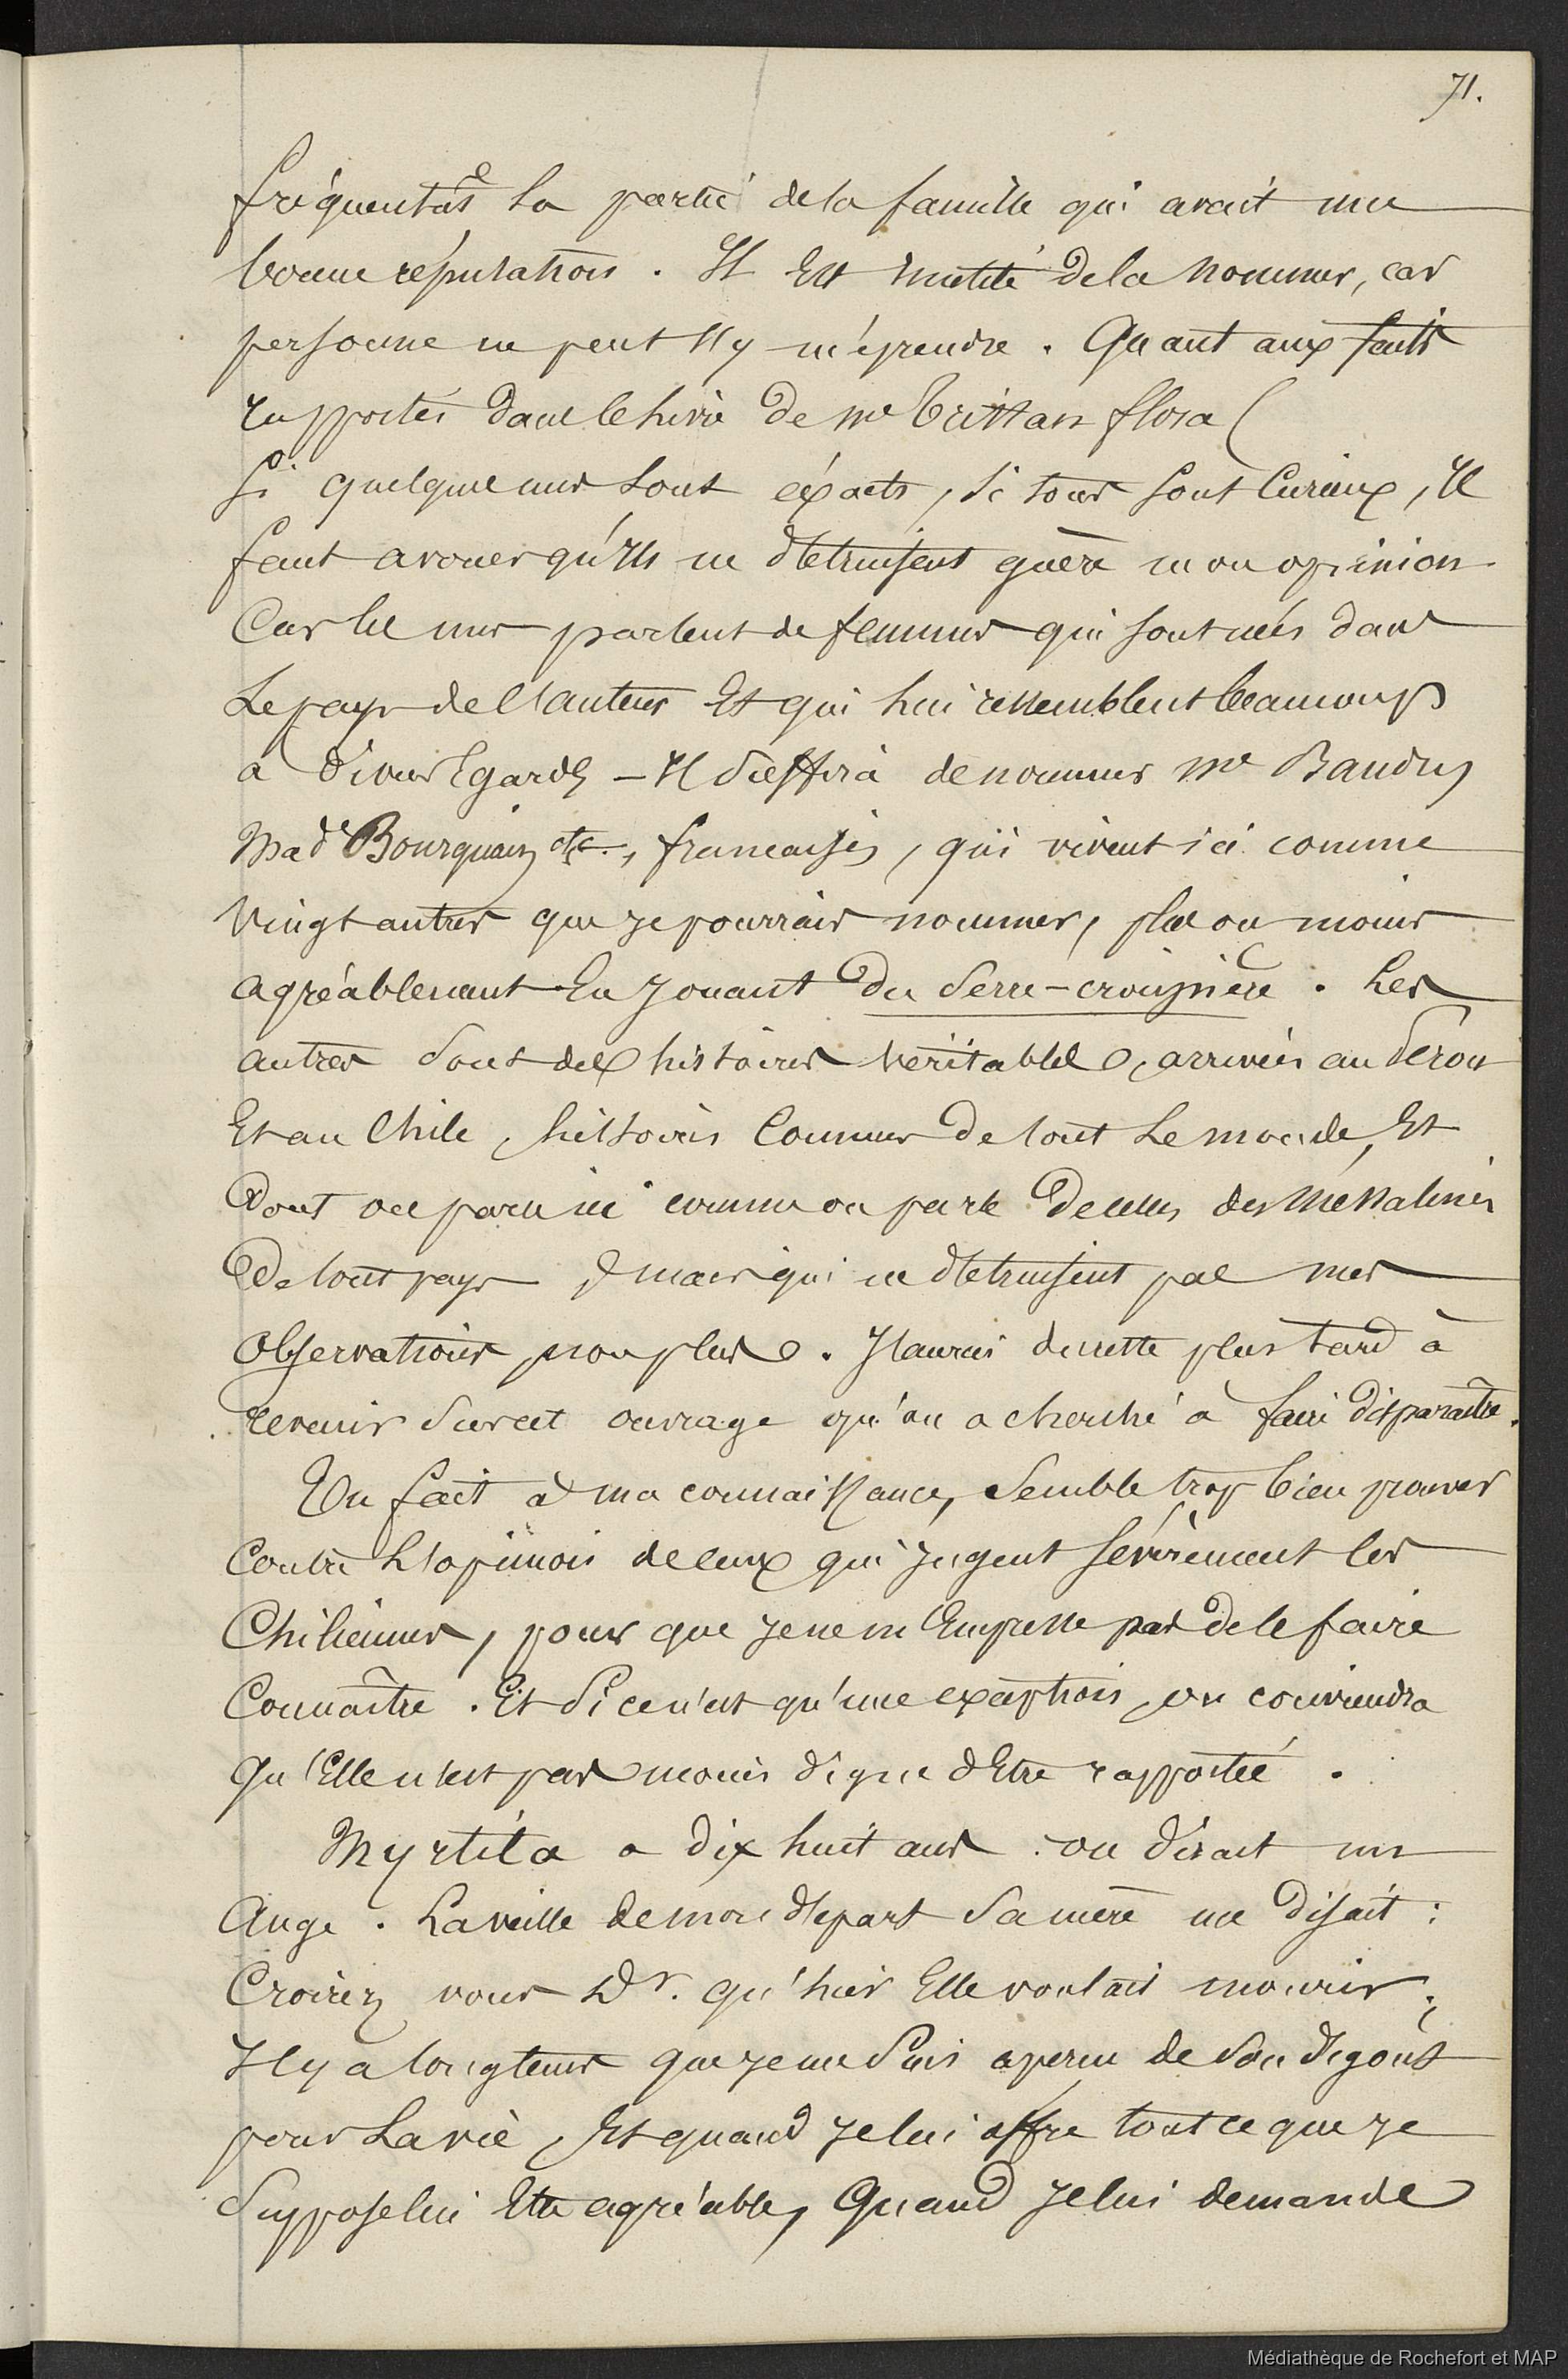 71.
fréquentâs la partie de la famille qui avait une
bonne réputation. Il Est inutile de la nommer, car
personne ne peut s'y méprendre. Quant aux faits
rapportés dans le livre de me Tristan flora (
Si quelques uns sont exacts, si tous sont Curieux, Il
faut avouer qu'Ils ne détruisent guère mon opinion
Car les uns parlent de femmes qui sont nées dans
Le pays de l'auteur Et qui lui ressemblent beaucoup
a divers Egards – Il suffira de nommer me Baudry
Made Bourquain etc., françaises, qui vivent ici comme
Vingt autres que je pourrais nommer, plus ou moins
agréablement En jouant du serre-croupière. Les
autres sont des histoires véritables, arrivées au Pérou
Et au Chile, histoires Connues de tout Le monde, Et
Dont on parle ici comme on parle De celles des Messalines
De tout pays, mais qui ne détruisent pas mes
Observations non plus. J'aurai du reste plus tard à
revenir sur cet ouvrage qu'on a cherché à faire disparaître.
Un fait à ma connaissance, semble trop bien prouver
Contre L'opinion de ceux qui jugent sévèrement les
Chiliennes, pour que je ne m'Empresse pas de le faire
Connaître. Et Si ce n'est qu'une exception, on conviendra
Qu'Elle n'est pas moins digne d'Etre rapportée.
Myrtila a dix huit ans. on dirait un
Ange. La veille de mon départ Sa mère me disait :
Croirez vous Dr. qu'hier Elle voulait mourir ;
Il y a longtems que je me Suis aperçu de son dégoût
pour La vie, Et quand je lui offre tout ce que je
Suppose lui Etre agréable, Quand je lui demande
Médiathèque de Rochefort et MAP